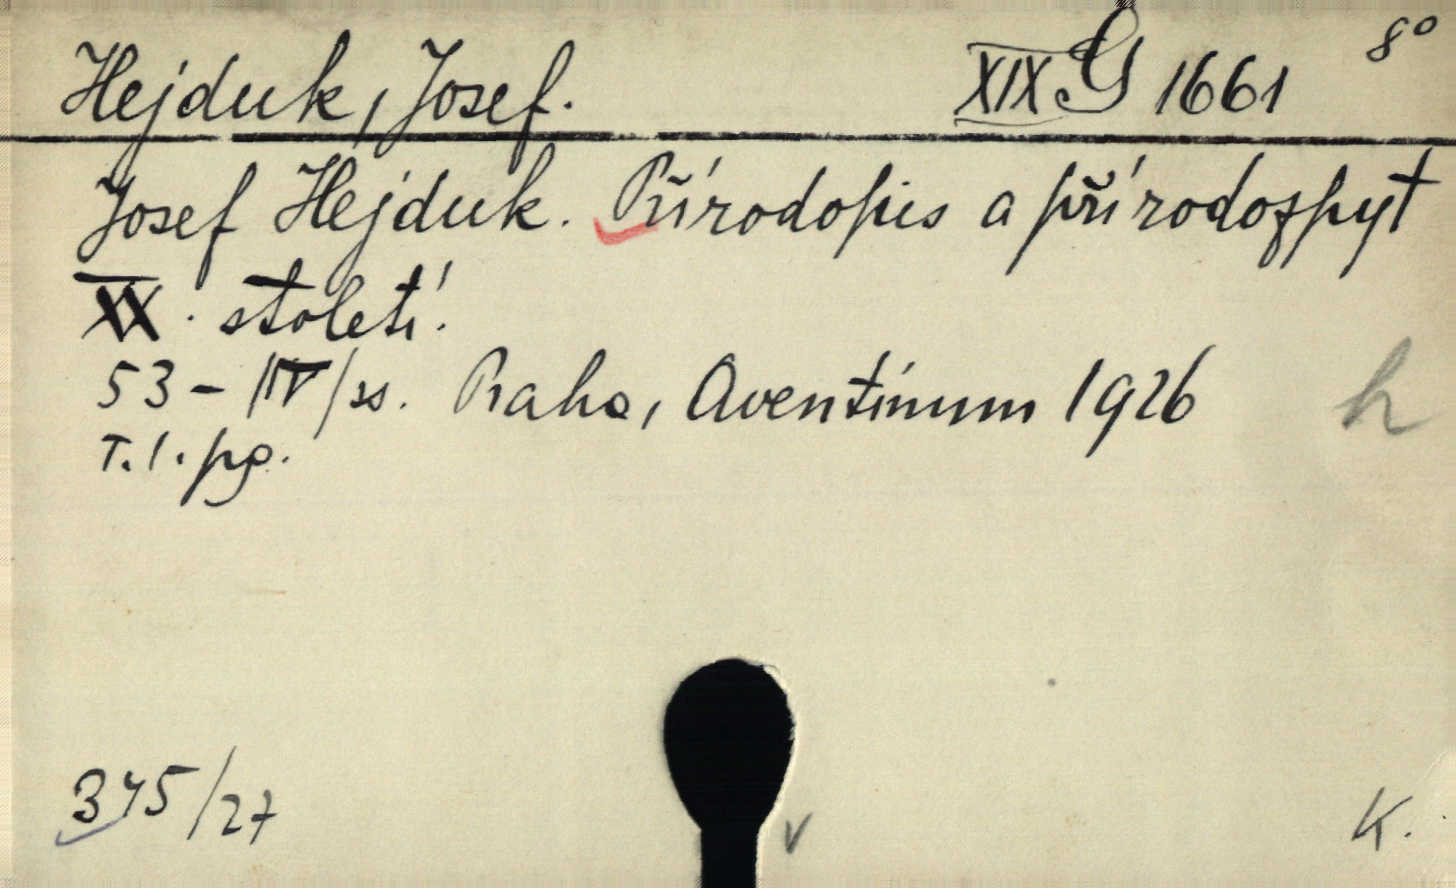 Hejduk, Josef. XIX G 1661 8°
Josef Hejduk. Přírodopis a přírodozpyt
XX. století.
53 - /IV/ ss. Praha, Aventinum 1926 h
T. l. pg.
375/27
v
K.